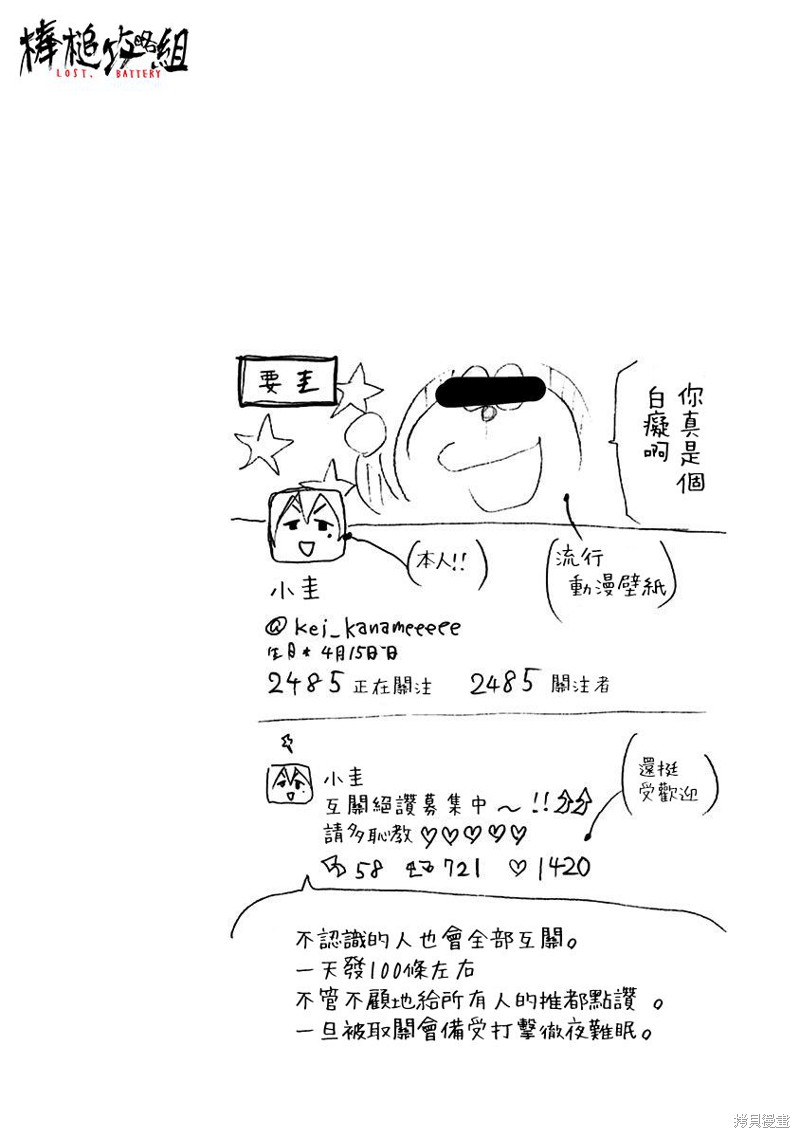 棒槌攻略組
LOST. BATTERY
要圭
你真是個
白癡啊
(本人!!)
(流行
動漫壁紙)
小圭
@kei_kanameeeee
生日* 4月15日
2485 正在關注 2485 關注者
(還挺
受歡迎)
小圭
互關絕讚募集中～!!
請多恥教♡♡♡♡♡
58 721 ♡1420
不認識的人也會全部互關。
一天發100條左右
不管不顧地給所有人的推都點讚。
一旦被取關會備受打擊徹夜難眠。
拷貝漫畫